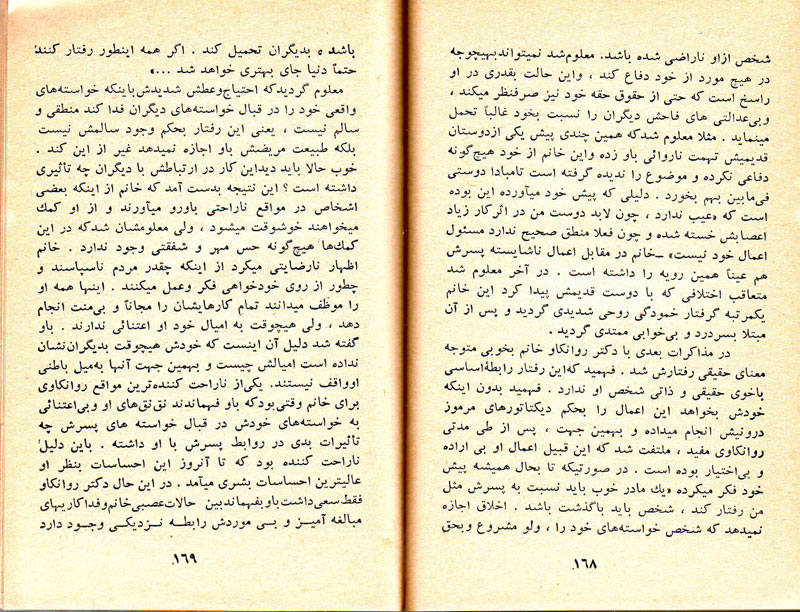 شخص ازاو ناراضی شده باشد. معلوم‌شد نمیتواند بهیچوجه
در هیچ مورد از خود دفاع کند ، واین حالت بقدری در او
راسخ است که حتی از حقوق حقه خود نیز صرفنظر میکند ،
وبی‌عدالتی های فاحش دیگران را نسبت بخود غالباً تحمل
مینماید . مثلا معلوم شدکه همین چندی پیش یکی ازدوستان
قدیمیش تهمت ناروائی باو زده واین خانم از خود هیچ‌گونه
دفاعی نکرده و موضوع را ندیده گرفته است تامبادا دوستی
فی‌مابین بهم بخورد . دلیلی که پیش خود میآورده این بوده
است که «عیب ندارد ، چون لابد دوست من در اثرکار زیاد
اعصابش خسته شده و چون فعلا منطق صحیح ندارد مسئول
اعمال خود نیست» ــ خانم در مقابل اعمال ناشایسته پسرش
هم عیناً همین رویه را داشته است . در آخر معلوم شد
متعاقب اختلافی که با دوست قدیمش پیدا کرد این خانم
یکمرتبه گرفتار خمودگی روحی شدیدی گردید و پس از آن
مبتلا بسردرد و بی‌خوابی ممتدی گردید .
در مذاکرات بعدی با دکتر روانکاو خانم بخوبی متوجه
معنای حقیقی رفتارش شد . فهمید که‌این رفتار رابطهٔ‌اساسی
باخوی حقیقی و ذاتی شخص او ندارد . فهمید بدون اینکه
خودش بخواهد این اعمال را بحکم دیکتاتورهای مرموز
درونیش انجام میداده و بهمین جهت ، پس از طی مدتی
روانکاوی مفید ، ملتفت شد که این قبیل اعمال او بی اراده
و بی‌اختیار بوده است . در صورتیکه تا بحال همیشه پیش
خود فکر میکرده «یك مادر خوب باید نسبت به پسرش مثل
من رفتار کند ، شخص باید باگذشت باشد . اخلاق اجازه
نمیدهد که شخص خواسته‌های خود را ، ولو مشروع وبحق
۱۶۸
باشد ، بدیگران تحمیل کند . اگر همه اینطور رفتار کنند
حتماً دنیا جای بهتری خواهد شد ...»
معلوم گردیدکه احتیاج‌وعطش شدیدش‌باینکه خواسته‌های
واقعی خود را در قبال خواسته‌های دیگران فدا کند منطقی و
سالم نیست ، یعنی این رفتار بحکم وجود سالمش نیست
بلکه طبیعت مریضش باو اجازه نمیدهد غیر از این کند .
خوب حالا باید دیداین کار در ارتباطش با دیگران چه تأثیری
داشته است ؟ این نتیجه بدست آمد که خانم از اینکه بعضی
اشخاص در مواقع ناراحتی باورو میآورند و از او کمك
میخواهند خوشوقت میشود ، ولی معلومشان شدکه در این
کمك‌ها هیچ‌گونه حس مهر و شفقتی وجود ندارد . خانم
اظهار نارضایتی میکرد از اینکه چقدر مردم ناسپاسند و
چطور از روی خودخواهی فکر وعمل میکنند . اینها همه او
را موظف میدانند تمام کارهایشان را مجاناً و بی‌منت انجام
دهد ، ولی هیچوقت به امیال خود او اعتنائی ندارند . باو
گفته شد دلیل آن اینست که خودش هیچوقت بدیگران‌نشان
نداده است امیالش چیست و بهمین جهت آنها به‌میل باطنی
اوواقف نیستند. یکی‌از ناراحت کننده‌ترین مواقع روانکاوی
برای خانم وقتی‌بودکه باو فهماندند نق‌نق‌های او وبی‌اعتنائی
به خواسته‌های خودش در قبال خواسته های پسرش چه
تأثیرات بدی در روابط پسرش با او داشته . باین دلیل
ناراحت کننده بود که تا آنروز این احساسات بنظر او
عالیترین احساسات بشری میآمد . در این حال دکتر روانکاو
فقط‌سعی‌داشت‌باو‌بفهماند‌بین حالات‌عصبی‌خانم‌و‌فداکاریهای
مبالغه آمیـز و بـی موردش رابطـه نـزدیکـی وجـود دارد
۱۶۹